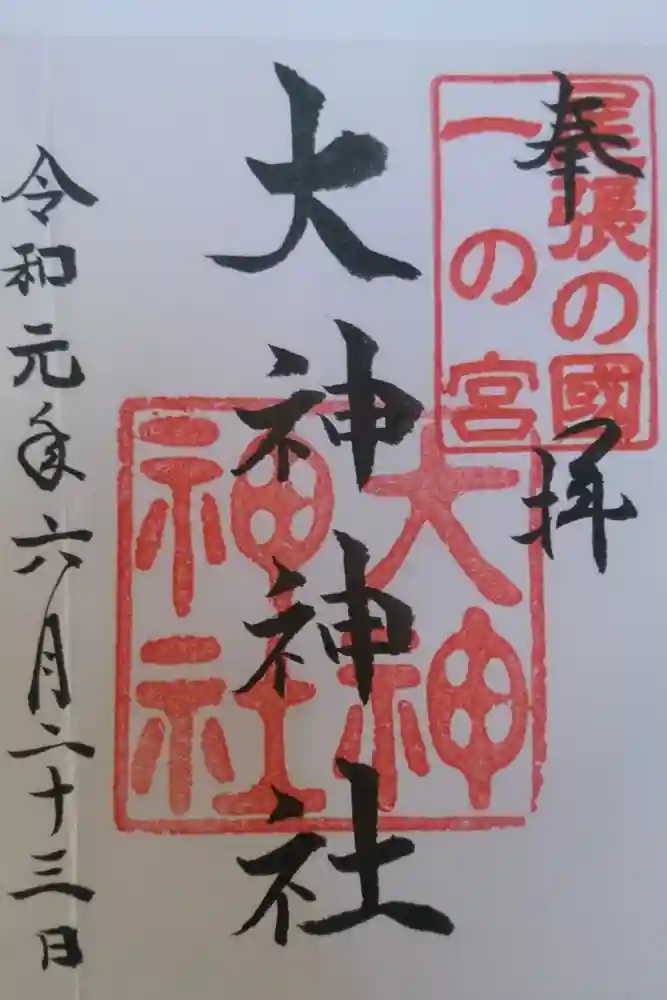 奉拝
尾張の國
一の宮
大神神社
大神
神社
令和元年六月二十三日